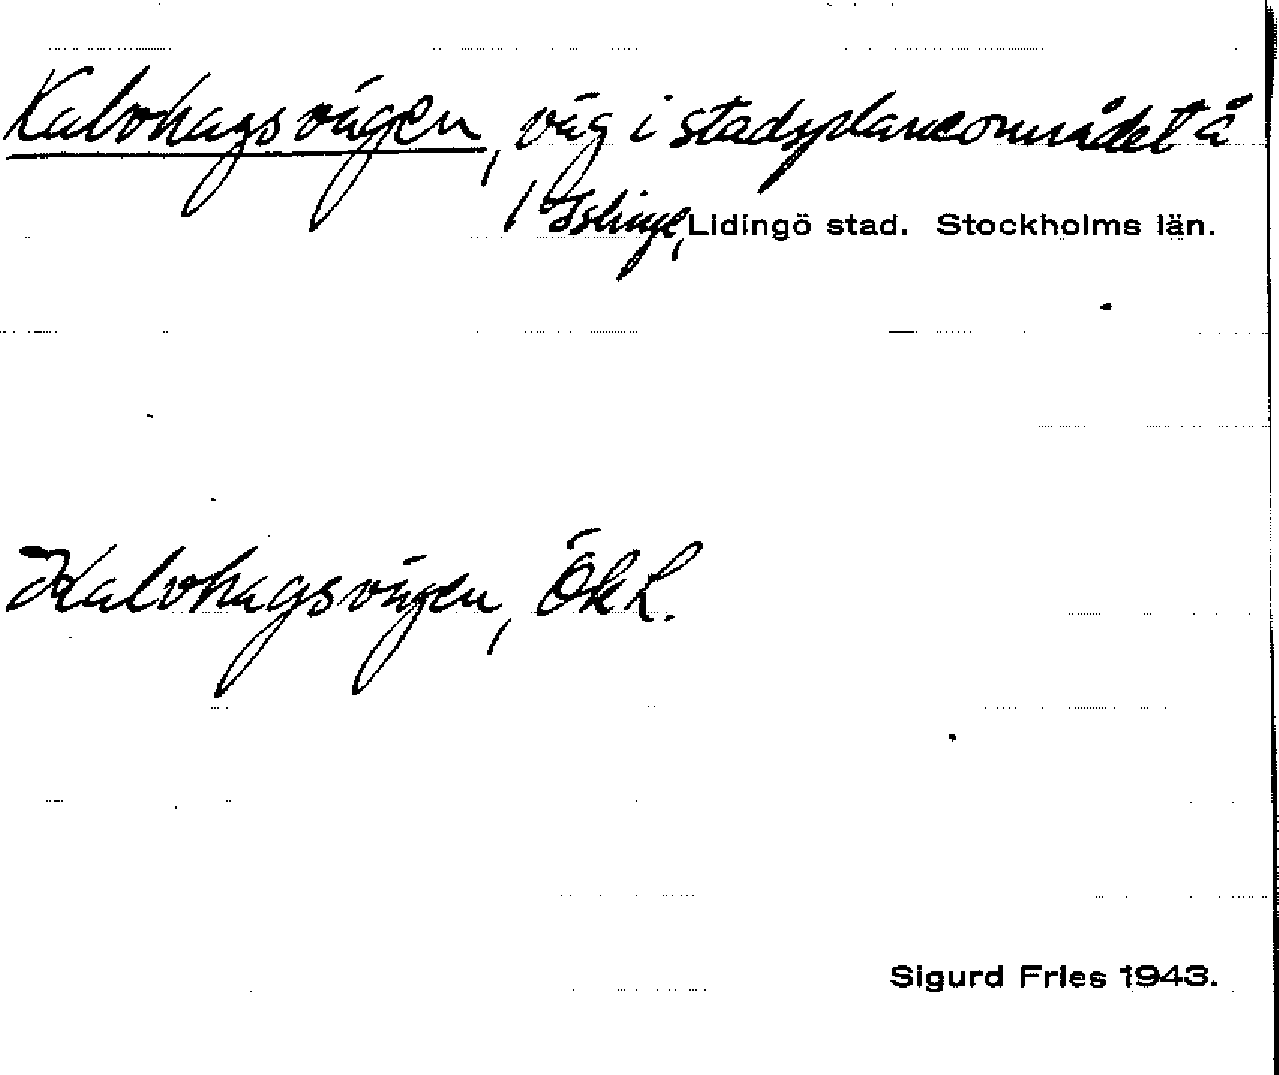 Kalvhagsvägen, väg i stadsplaneområdet å
Islinge, Lidingö stad. Stockholms län.
Kalvhagsvägen, ÖkL.
Sigurd Fries 1943.